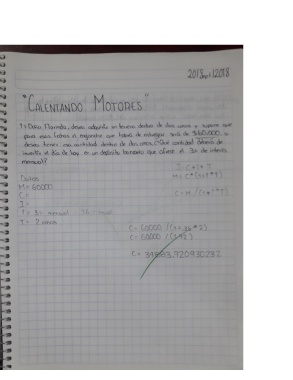 "CALENTANDO MOTORES"
1: Doña Florinda, desea adquirir un terreno dentro de dos años y supone que
para esas fechas el enganche que habrá de entregar será de $60,000, si
desea tener esa cantidad dentro de dos años. ¿Que cantidad deberá de
invertir el día de hoy en un deposito bancario que ofrece el 3% de interés
mensual?
M = C*(1+i*T)
M = 60000
C =
I =
C = M / (1+i*T)
i = 3% mensual
T = 2 años
C = 60000 / (1+.36*2)
C = 60000 / (1.72)
C = 34883.720930232